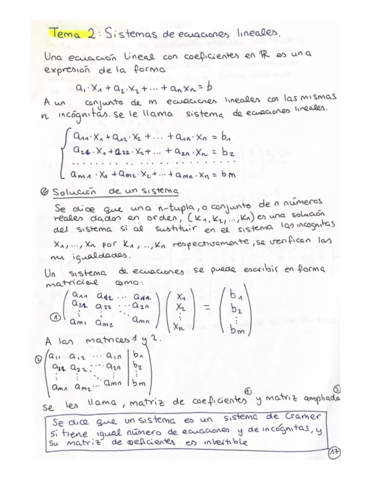 Tema 2: Sistemas de ecuaciones lineales.
Una ecuación lineal con coeficientes en ℝ es una
expresión de la forma
a₁·x₁+a₂·x₂+...+aₙxₙ=b
A un conjunto de m ecuaciones lineales con las mismas
n incógnitas se le llama sistema de ecuaciones lineales.
a₁₁·x₁+a₁₂·x₂+...+a₁ₙ·xₙ=b₁
a₂₁·x₁+a₂₂·x₂+...+a₂ₙ·xₙ=b₂
. . . . . . . . . . . . . . . . . .
aₘ₁·x₁+aₘ₂·x₂+...+aₘₙ·xₙ=bm
Solución de un sistema
Se dice que una n-tupla, o conjunto de n números
reales dados en orden, (k₁,k₂,...,kₙ) es una solución
del sistema si al sustituir en el sistema las incógnitas
x₁,...,xₙ por k₁,...,kₙ respectivamente, se verifican las
m igualdades.
Un sistema de ecuaciones se puede escribir en forma
matricial como:
a₁₁ a₁₂ ... a₁ₙ x₁ b₁
a₂₁ a₂₂ ... a₂ₙ x₂ = b₂
⋮ ⋮ ⋮ ⋮
① aₘ₁ aₘ₂ ... aₘₙ xₙ bm
A las matrices 1 y 2.
② a₁₁ a₁₂ ... a₁ₙ | b₁
a₂₁ a₂₂ ... a₂ₙ | b₂
⋮ ⋮ ⋮ ⋮
aₘ₁ aₘ₂ ... aₘₙ | bm
① ②
Se les llama, matriz de coeficientes y matriz ampliada
Se dice que un sistema es un sistema de Cramer
si tiene igual número de ecuaciones y de incógnitas, y
su matriz de coeficientes es invertible
17